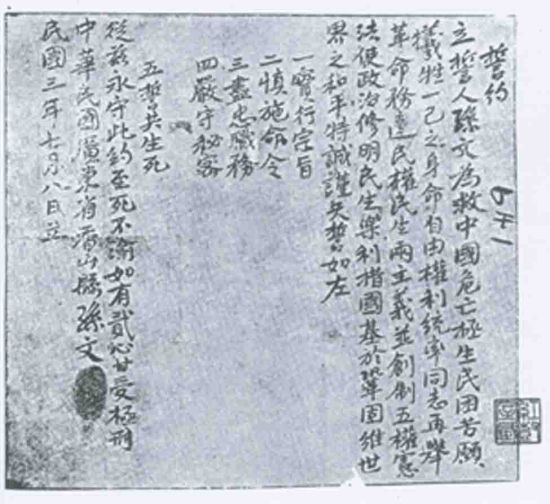 誓約
立誓人孫文為救中國危亡拯生民困苦願
犧牲一己之身命自由權利統率同志再舉
革命務達民權民生兩主義並創制五權憲
法使政治修明民生樂利措國基於鞏固維世
界之和平特誠謹矢誓如左
一實行宗旨
二慎施命令
三盡忠職務
四嚴守秘密
五誓共生死
從茲永守此約至死不渝如有貳心甘受極刑
中華民國廣東省香山縣孫文
民國三年七月八日立
641